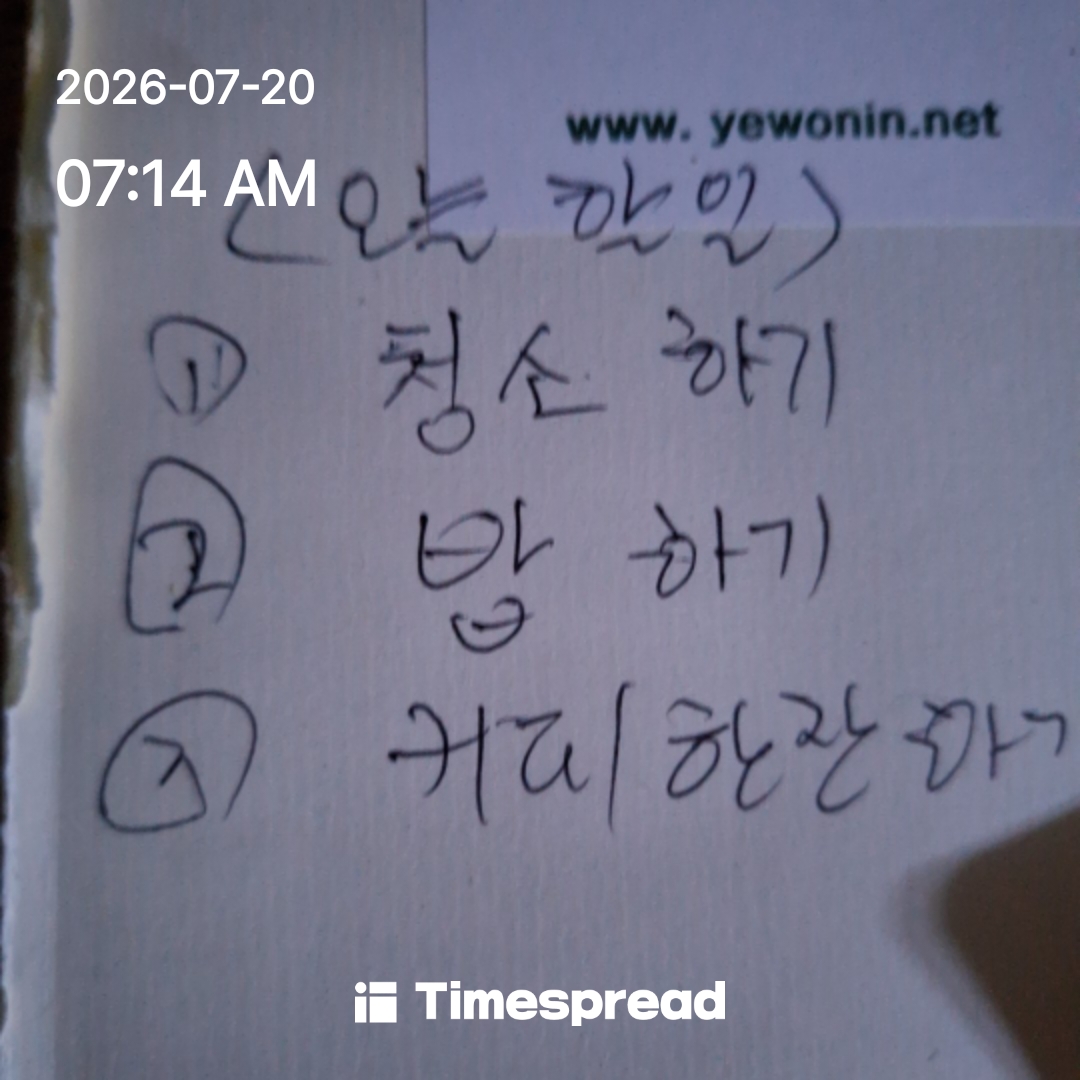 2026-07-20
07:14 AM
www. yewonin.net
(오늘 할일)
① 청소 하기
② 밥 하기
③ 커피 한잔 하기
Timespread